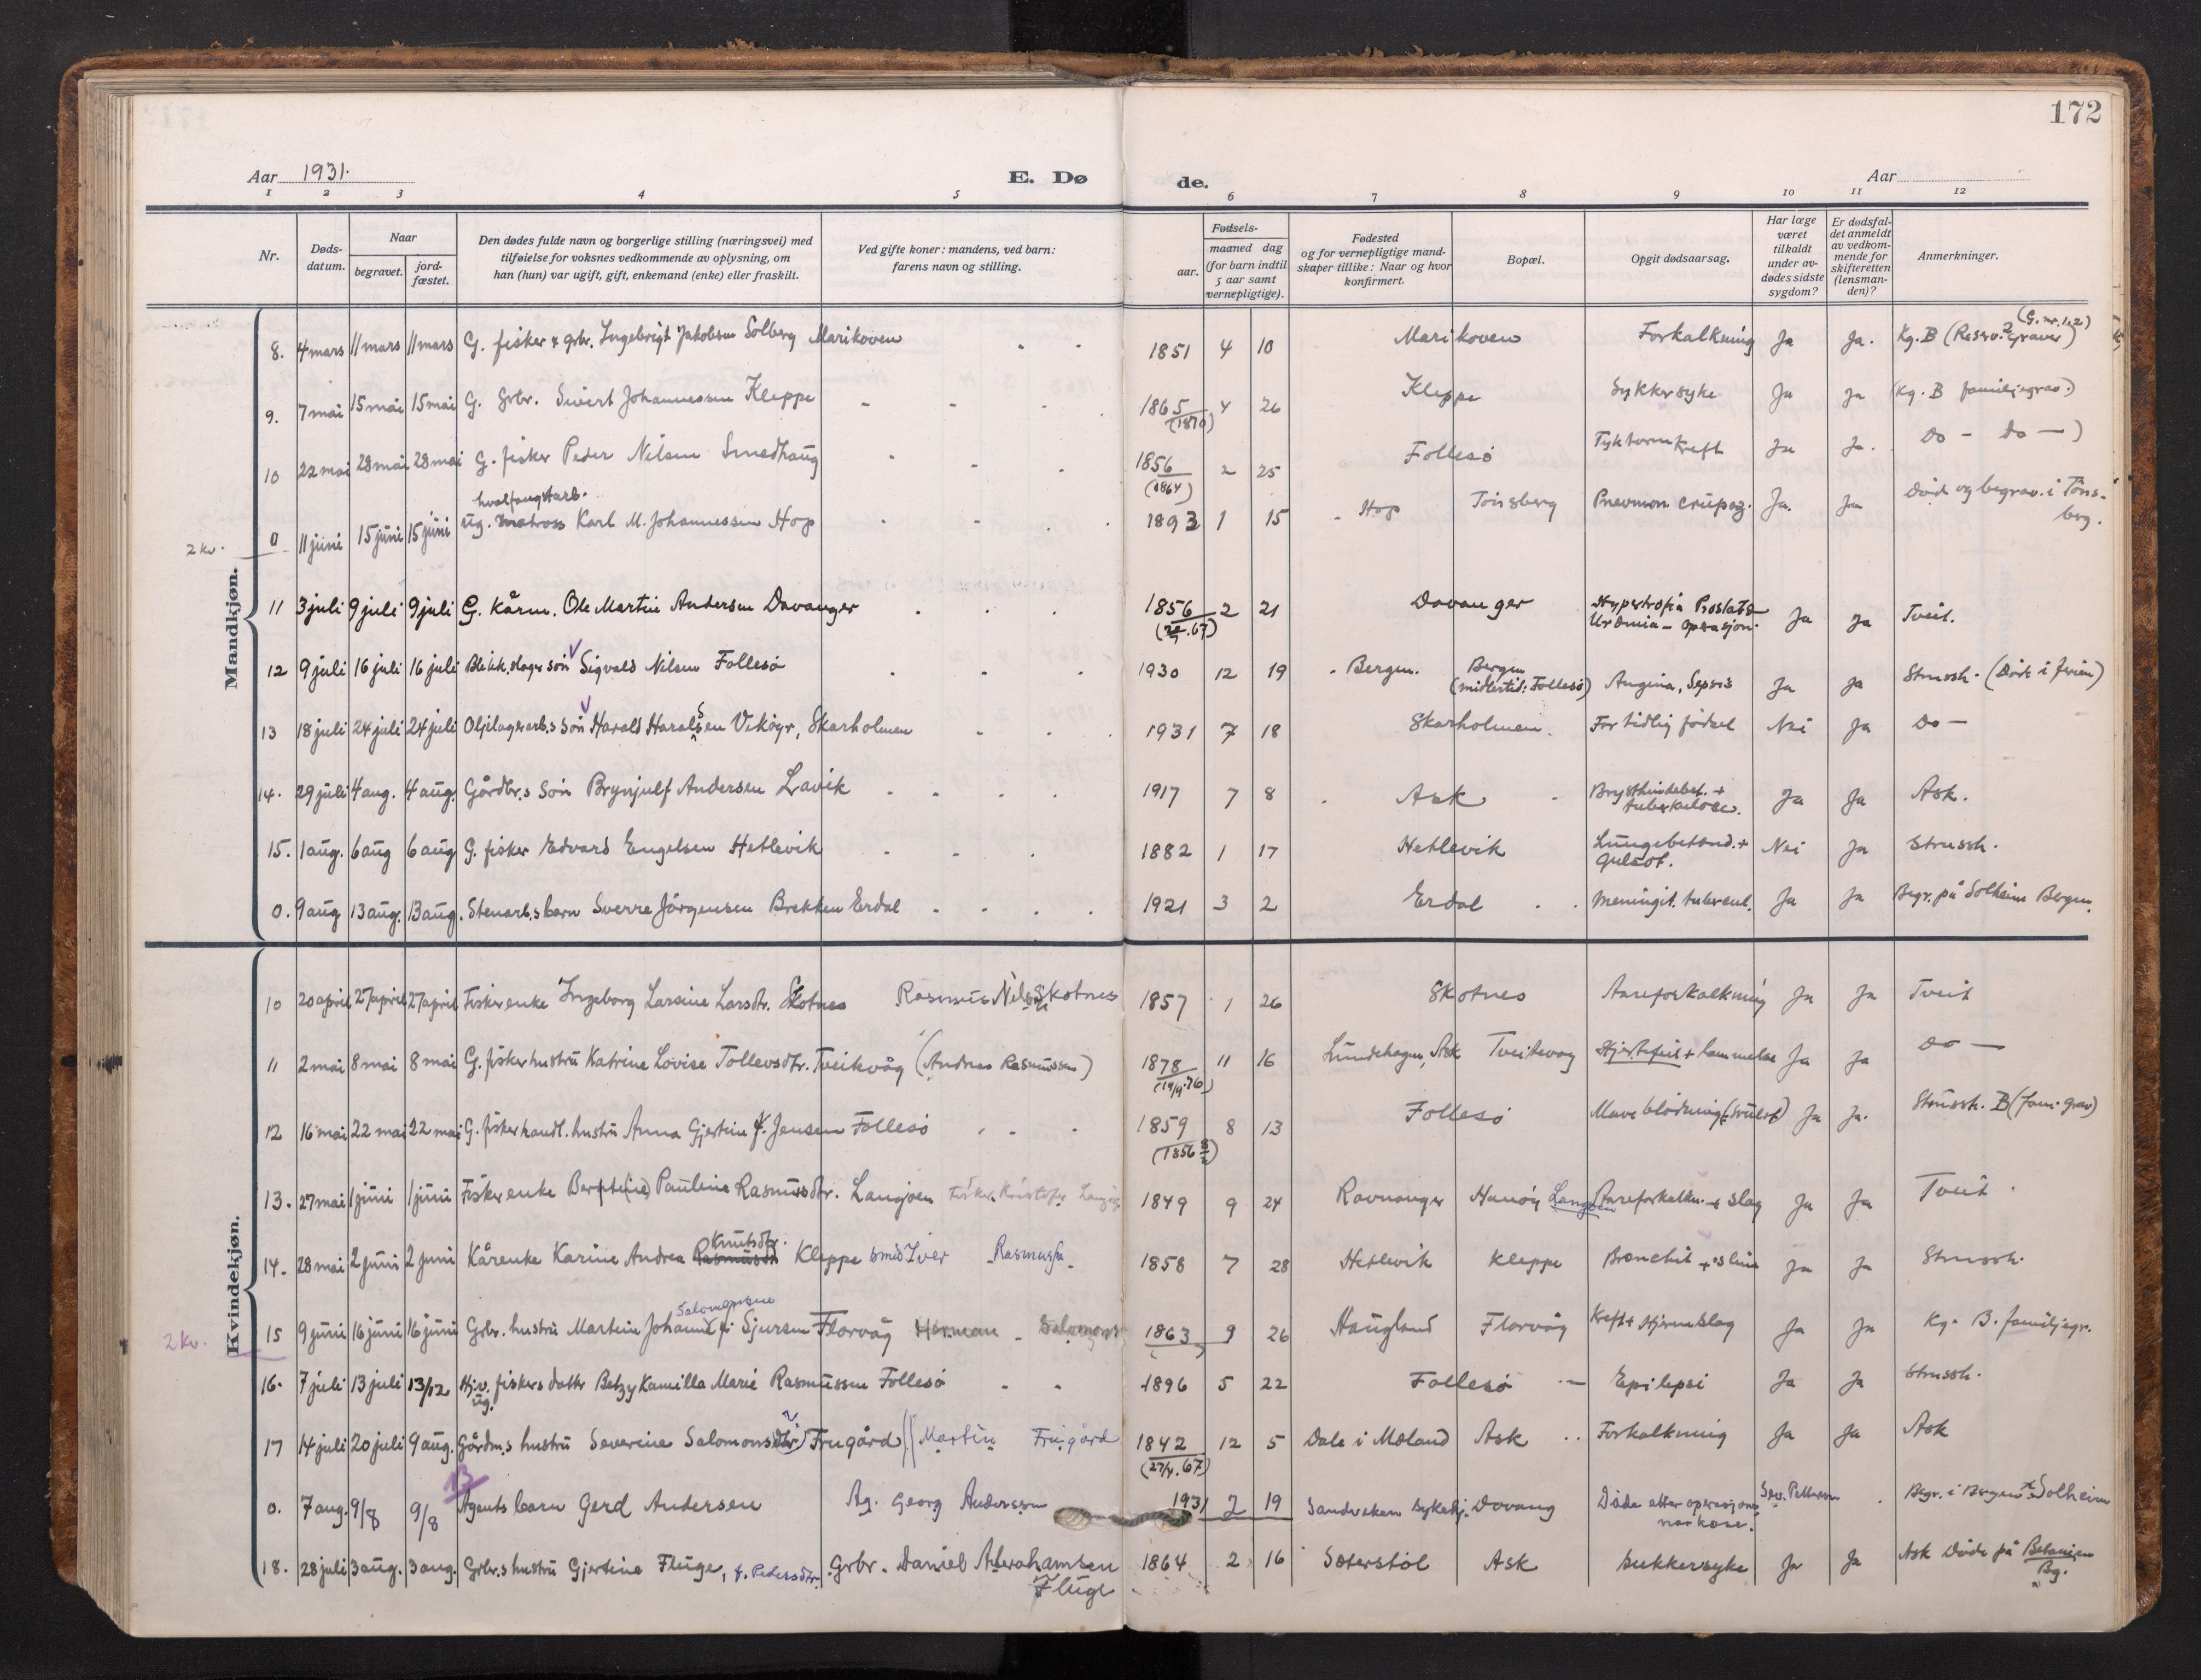 172
Aar 1931.
E. Dø
de.
Aar
1 2 3 4 5 6 7 8 9 10 11 12
Nr.
Døds-
datum.
Naar
begravet.
jord-
fæstet.
Den dødes fulde navn og borgerlige stilling (næringsvei) med
tilføielse for voksnes vedkommende av oplysning, om
han (hun) var ugift, gift, enkemand (enke) eller fraskilt.
Ved gifte koner: mandens, ved barn:
farens navn og stilling.
Fødsels-
aar.
maaned dag
(for barn indtil
5 aar samt
vernepligtige).
Fødested
og for vernepligtige mand-
skaper tillike: Naar og hvor
konfirmert.
Bopæl.
Opgit dødsaarsag.
Har læge
været
tilkaldt
under av-
dødes sidste
sygdom?
Er dødsfal-
det anmeldt
av vedkom-
mende for
skifteretten
(lensman-
den)?
Anmerkninger.
Mandkjøn.
(G. nr. 1, 2)
8. 4 mars 11 mars 11 mars G. fisker & grbr. Ingebrigt Jakobsen Solberg Marikoven - - 1851 4 10 Marikoven Forkalkning Ja Ja. Kg. B (Reserv. 2 graver)
9. 7 mai 15 mai 15 mai G. Grbr. Sivert Johannessen Kleppe - - - 1865 4 26 Kleppe Sykkersyke Ja Ja (Kg. B familjegrav.)
(1870)
10 22 mai 28 mai 28 mai G. fisker Peder Nilsen Smedhaug - - - 1856 2 25 Follesø Tyktarmkreft Ja Ja. Do - Do - )
(1864)
hvalfangstarb.
2 kv. 0 11 juni 15 juni 15 juni ug. matross Karl M. Johannessen Hop - - - 1893 1 15 Hop Tønsberg Pnevmon crupøs. Ja. Ja Død og begrav. i Tøns-
berg.
11 3 juli 9 juli 9 juli G. Kårm. Ole Martin Andersen Davanger - - - 1856 2 21 Davanger Hypertrofia Prostata Ja Ja Tveit.
Uræmia - operasjon.
12 9 juli 16 juli 16 juli Blikk.slager søn Sigvald Nilsen Follesø - - - 1930 12 19 Bergen. Bergen
(midlertid: Follesø) Angina, Sepsis Ja Ja Strussh. (Død i ferien)
13 18 juli 24 juli 24 juli Oljelagerarb.s søn Harald Haralsen Vikøyr, Skarholmen - - - 1931 7 18 Skarholmen. For tidlig fødsel Nei Ja Do -
14. 29 juli 4 aug. 4 aug. Gårdbr.s søn Brynjulf Andersen Lavik - - - - 1917 7 8 Ask Brysthindebet. +
tuberkulose. Ja Ja Ask.
15. 1 aug. 6 aug 6 aug G. fisker Edvard Engelsen Hetlevik - - - 1882 1 17 Hetlevik Lungebetænd. +
gulsot. Nei Ja Strussh.
0. 9 aug 13 aug. 13 aug. Stenarb.s barn Sverre Jörgensen Brekken Erdal - - - - 1921 3 2 Erdal Meningit. tubercul. Ja Ja Begr. på Solheim Bergen.
Kvindekjøn.
10 20 april 27 april 27 april Fiskerenke Ingeborg Larsine Larsdtr. Skotnes Rasmus Nilsen Skotnes 1857 1 26 Skotnes Aareforkalkning Ja Ja Tveit
11 2 mai 8 mai 8 mai G. fisker hustru Katrine Lovise Tollevsdtr. Tveitevåg (Andreas Rasmussen) 1878 11 16 Lundehagen, Ask Tveitevåg Hjertefeil + lammelse Ja Ja Do -
(14/4.76)
12 16 mai 22 mai 22 mai G. fisker handl. hustru Anna Gjertine f. Jensen Follesø - - - 1859 8 13 Follesø Maveblødning (svulst) Ja Ja. Strussh. B (fam. grav)
13. 27 mai 1 juni 1 juni Fiskerenke Pauline Rasmusdtr. Langøen Fisker Kristofer 1849 9 24 Ravnanger Hanöy Langøen Aareforkalkn. + slag Ja Ja Tveit
Knutsdtr.
14. 28 mai 2 juni 2 juni Kårenke Karine Andrea Rasmusdt Kleppe smed Iver Rasmuss. 1858 7 28 Hetlevik Kleppe Bronchit + slim Ja Ja Strussh.
2 kv. 15 9 juni 16 juni 16 juni Grbr. hustru Martine Sjursen Florvåg Herman - Salomons 1863 9 26 Haugland Florvåg Kreft + Hjerneslag Ja Ja Kg. B. familjegr.
16. 7 juli 13 juli 13/12 Hjv. fiskers datter Betzy Kamilla Marie Rasmussen Follesø - - 1896 5 22 Follesø - Epilepsi Ja Ja Strussh.
ug.
17 14 juli 20 juli 9 aug. Gårdm.s hustru Severine Salomonsdtr. Frugård (Martin Frugård 1842 12 5 Dale i Moland Ask Forkalkning Ja Ja Ask
(27/4.67)
0. 7 aug. 9/8 9/8 Agents barn Gerd Andersen Ag. Georg Andersen 1931 2 19 Sandviken sykehj. Davang Døde etter operasjons
narkose. Begr. i Bergen Solheim
18. 28 juli 3 aug. 3 aug. Grbr.s hustru Gjertine Fluge, f. Pedersdtr. Grbr. Daniel Abrahamsen
Fluge 1864 2 16 Sæterstöl Ask Sukkersyke Ja Ja Ask Døde på Betanien
Bg.